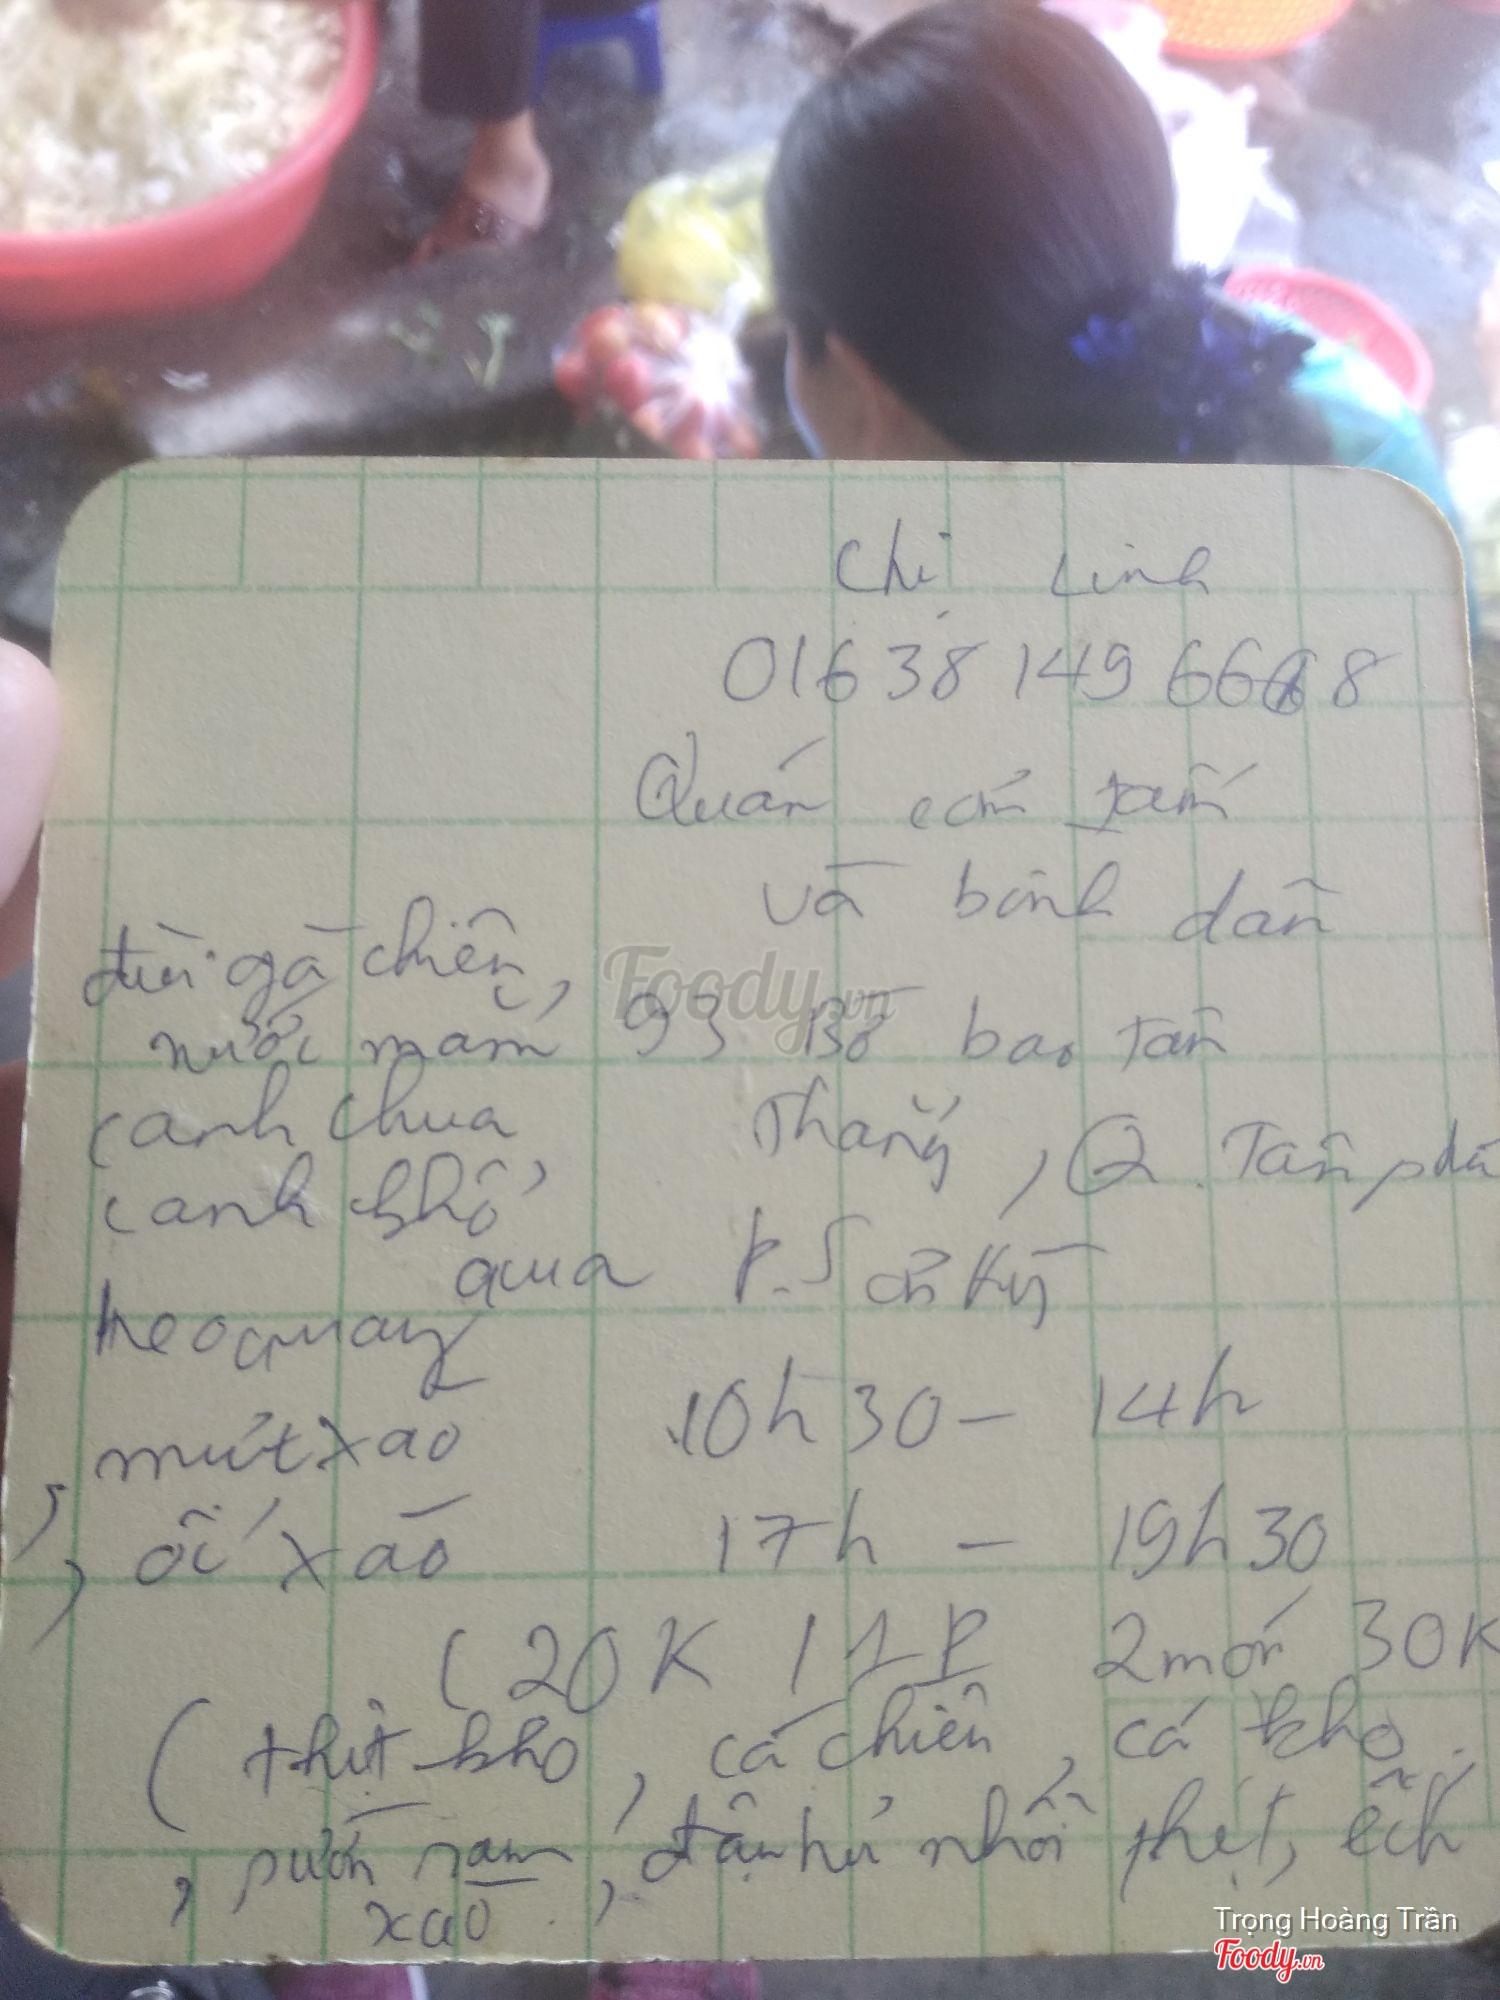 Chị Linh
01638 149 66 8
Quán cơm tấm
và bình dân
93 Bờ bao Tân
Thắng, Q. Tân phú
P. Sơn Kỳ
10h30 - 14h
17h - 19h30
đùi gà chiên,
nước mắm,
canh chua
canh khổ
qua
heo quay
mứt xào
, ối xào
(20K / 1P 2 món 30K
(thịt kho, cá chiên, cá kho,
, sườn ram, đậu hủ nhồi thịt, ếch
xào
Foody.vn
Trọng Hoàng Trần
Foody.vn